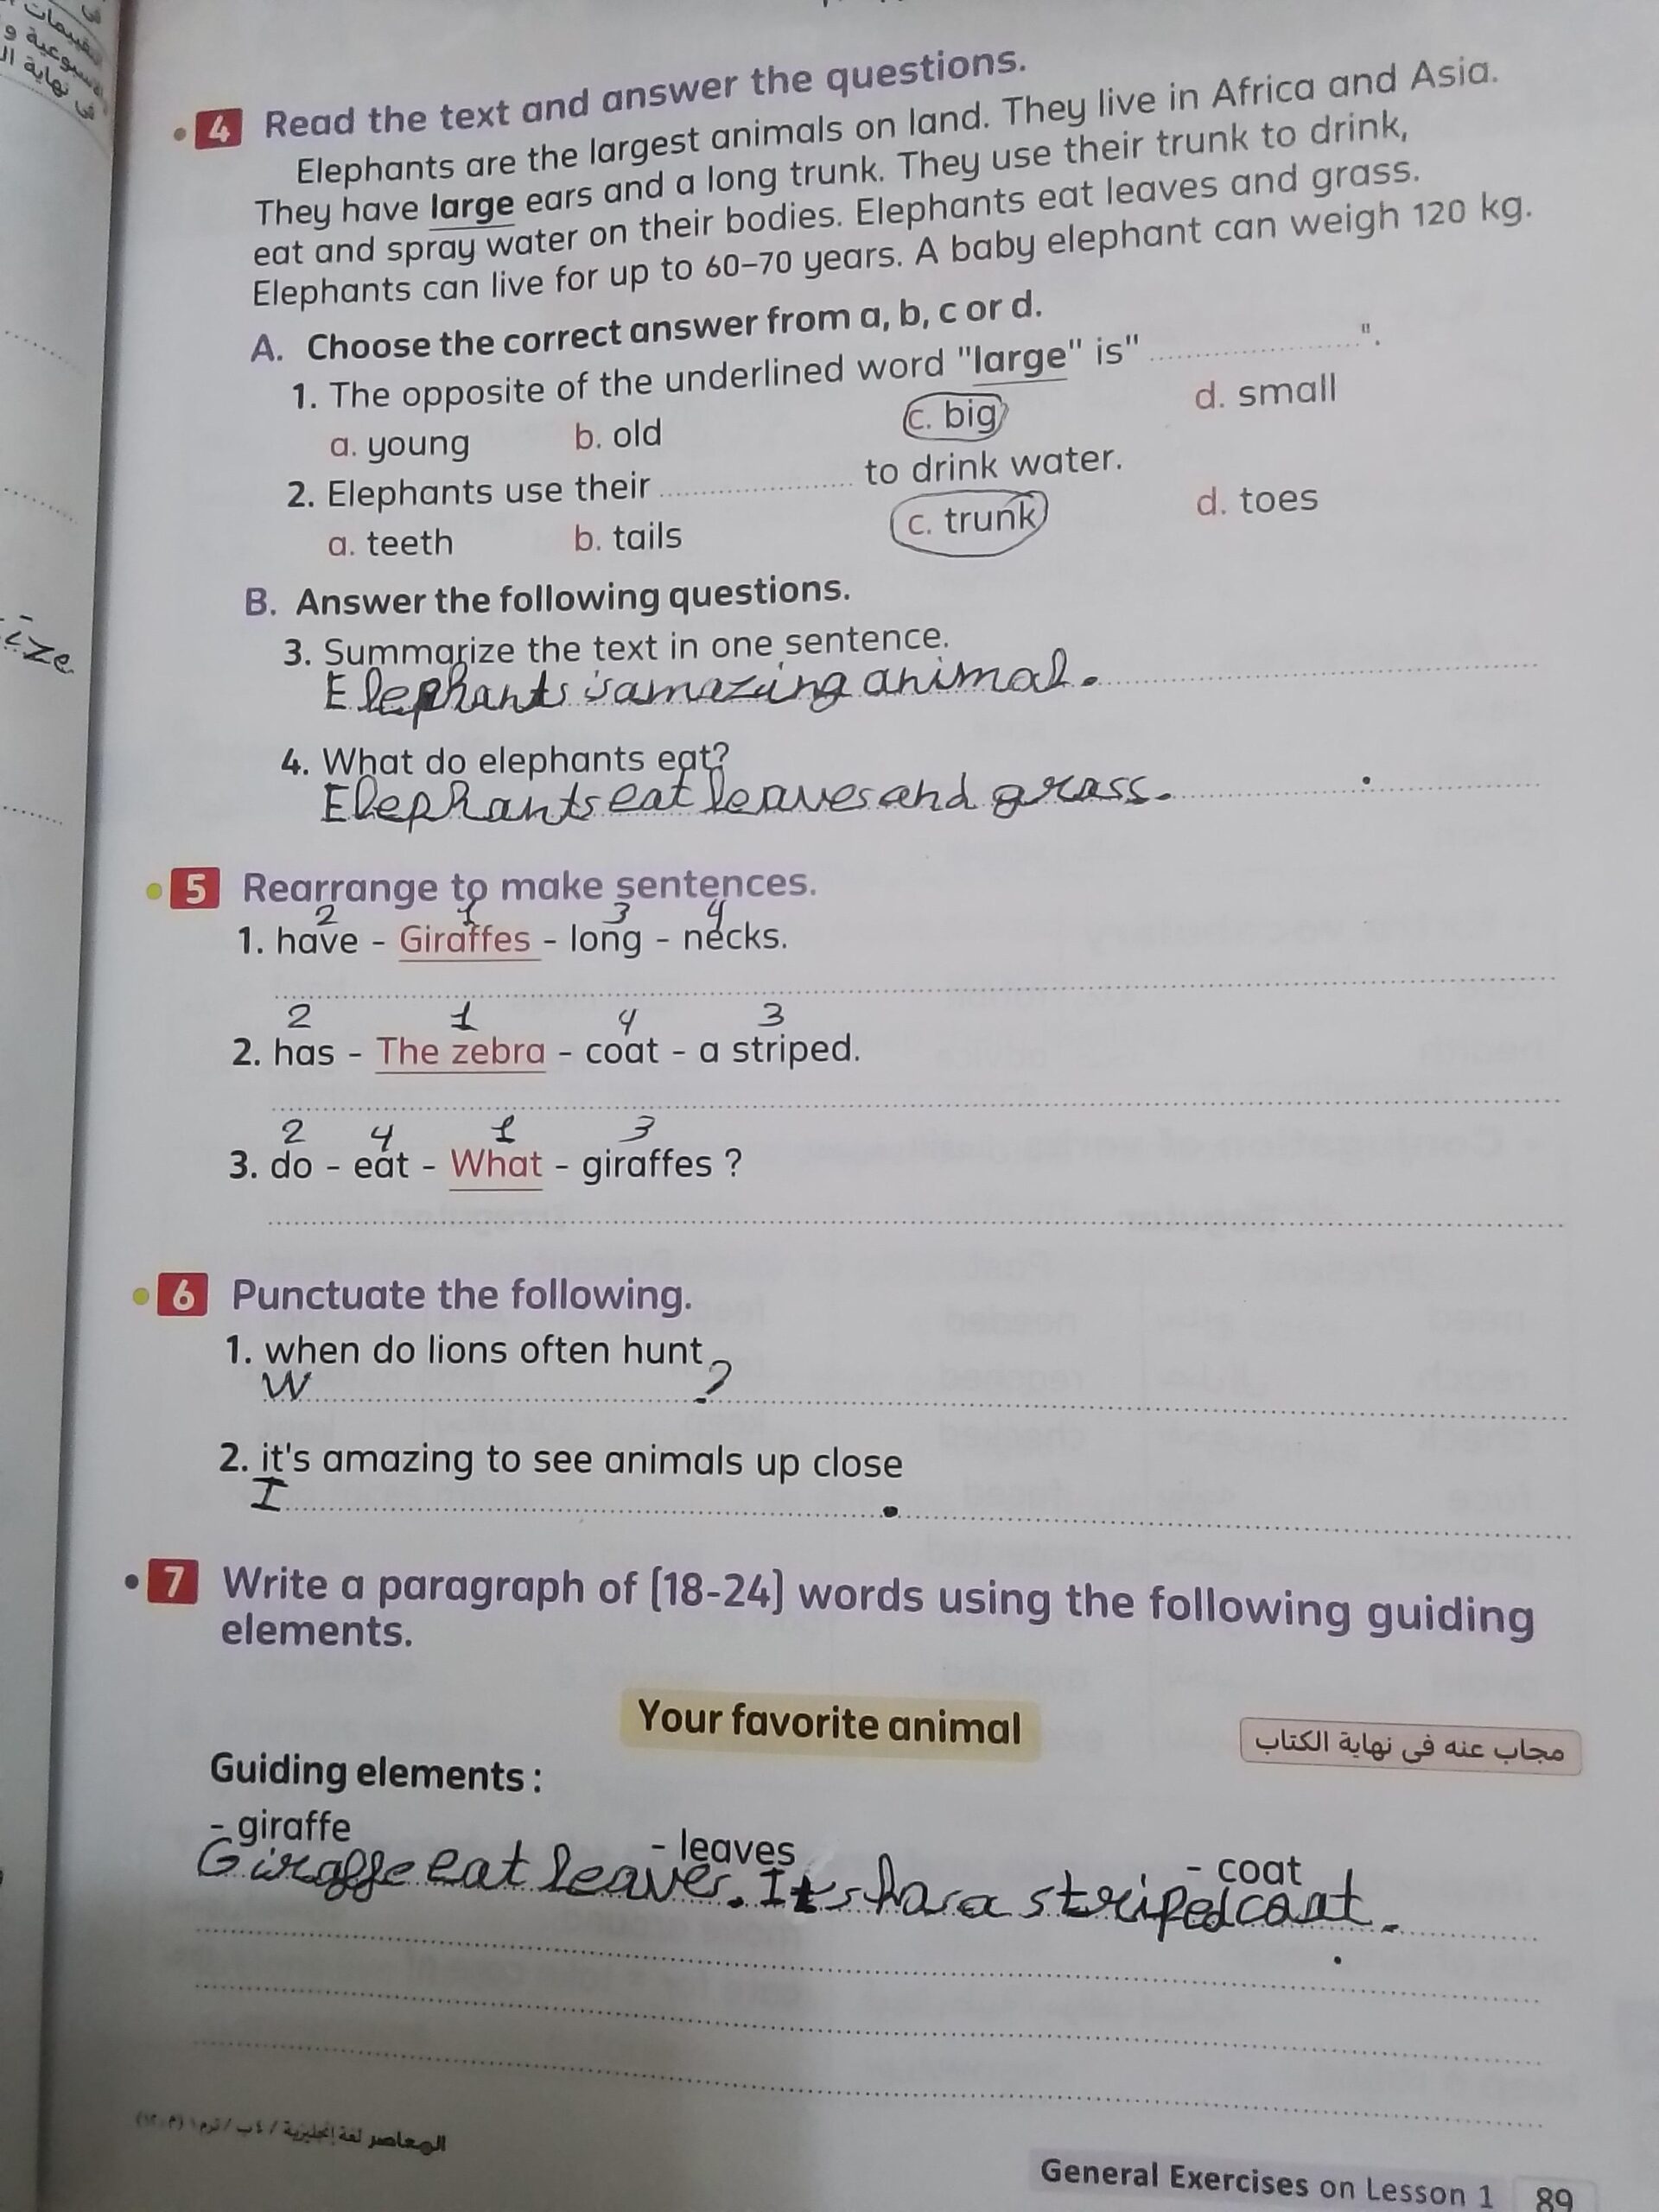 4 Read the text and answer the questions.
Elephants are the largest animals on land. They live in Africa and Asia.
They have large ears and a long trunk. They use their trunk to drink,
eat and spray water on their bodies. Elephants eat leaves and grass.
Elephants can live for up to 60–70 years. A baby elephant can weigh 120 kg.
A. Choose the correct answer from a, b, c or d.
1. The opposite of the underlined word "large" is" ".
a. young b. old c. big d. small
2. Elephants use their to drink water.
a. teeth b. tails c. trunk d. toes
B. Answer the following questions.
3. Summarize the text in one sentence.
Elephants is amazing animal.
4. What do elephants eat?
Elephants eat leaves and grass.
5 Rearrange to make sentences.
2 1 3 4
1. have - Giraffes - long - necks.
2 1 4 3
2. has - The zebra - coat - a striped.
2 4 1 3
3. do - eat - What - giraffes ?
6 Punctuate the following.
1. when do lions often hunt
W ?
2. it's amazing to see animals up close
I .
7 Write a paragraph of (18-24) words using the following guiding
elements.
Your favorite animal
مجاب عنه فى نهاية الكتاب
Guiding elements :
- giraffe - leaves - coat
Giraffe eat leaves. It s has a striped coat.
المعاصر لغة إنجليزية / ٤ ب / ترم ١ (م: ١٢)
General Exercises on Lesson 1 89